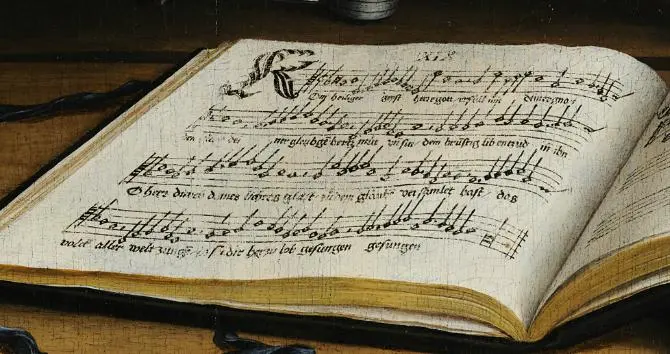 XIX
Kom heiliger geyst herregott erfüll mit deiner gna
den deiner gleubgē hertz mut un sin dein brustig lib entzund in ihn
O herr durch deines lichtes glast zu dem glaubē versamlet hast das
volck aller welt zungē dir herr zu lob gesungen gesungen